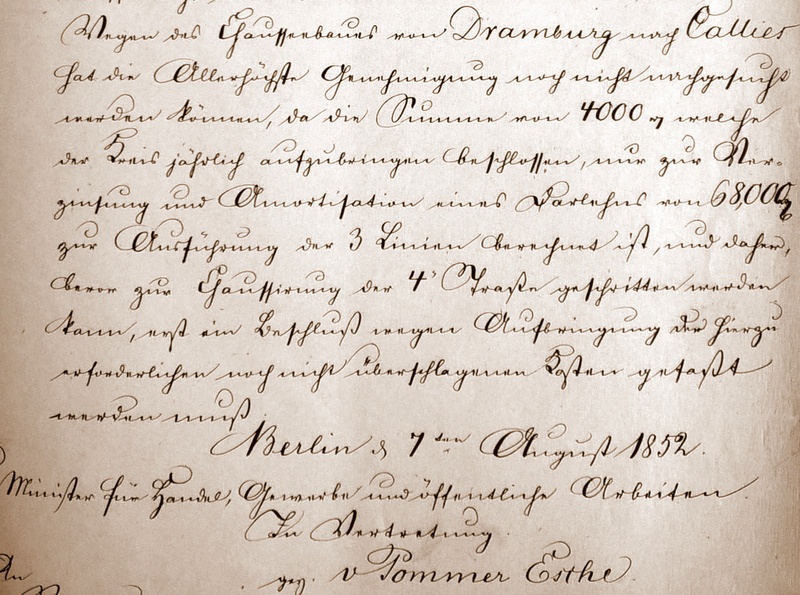 Wegen des Chausseebaues von Dramburg nach Callies
hat die Allerhöchste Genehmigung noch nicht nachgesucht
werden können, da die Summe von 4000 rl welche
der Kreis jährlich aufzubringen beschlossen, nur zur Ver-
zinsung und Amortisation eines Darlehns von 68,000
zur Ausführung der 3 Linien berechnet ist, und daher,
bevor zur Chaussirung der 4t Straße geschritten werden
kann, erst ein Beschluß wegen Aufbringung der hierzu
erforderlichen noch nicht überschlagenen Kosten gefaßt
werden muß
Berlin d 7ten August 1852.
Minister für Handel, Gewerbe und öffentliche Arbeiten.
In Vertretung
gez. v Pommer Esche.
An